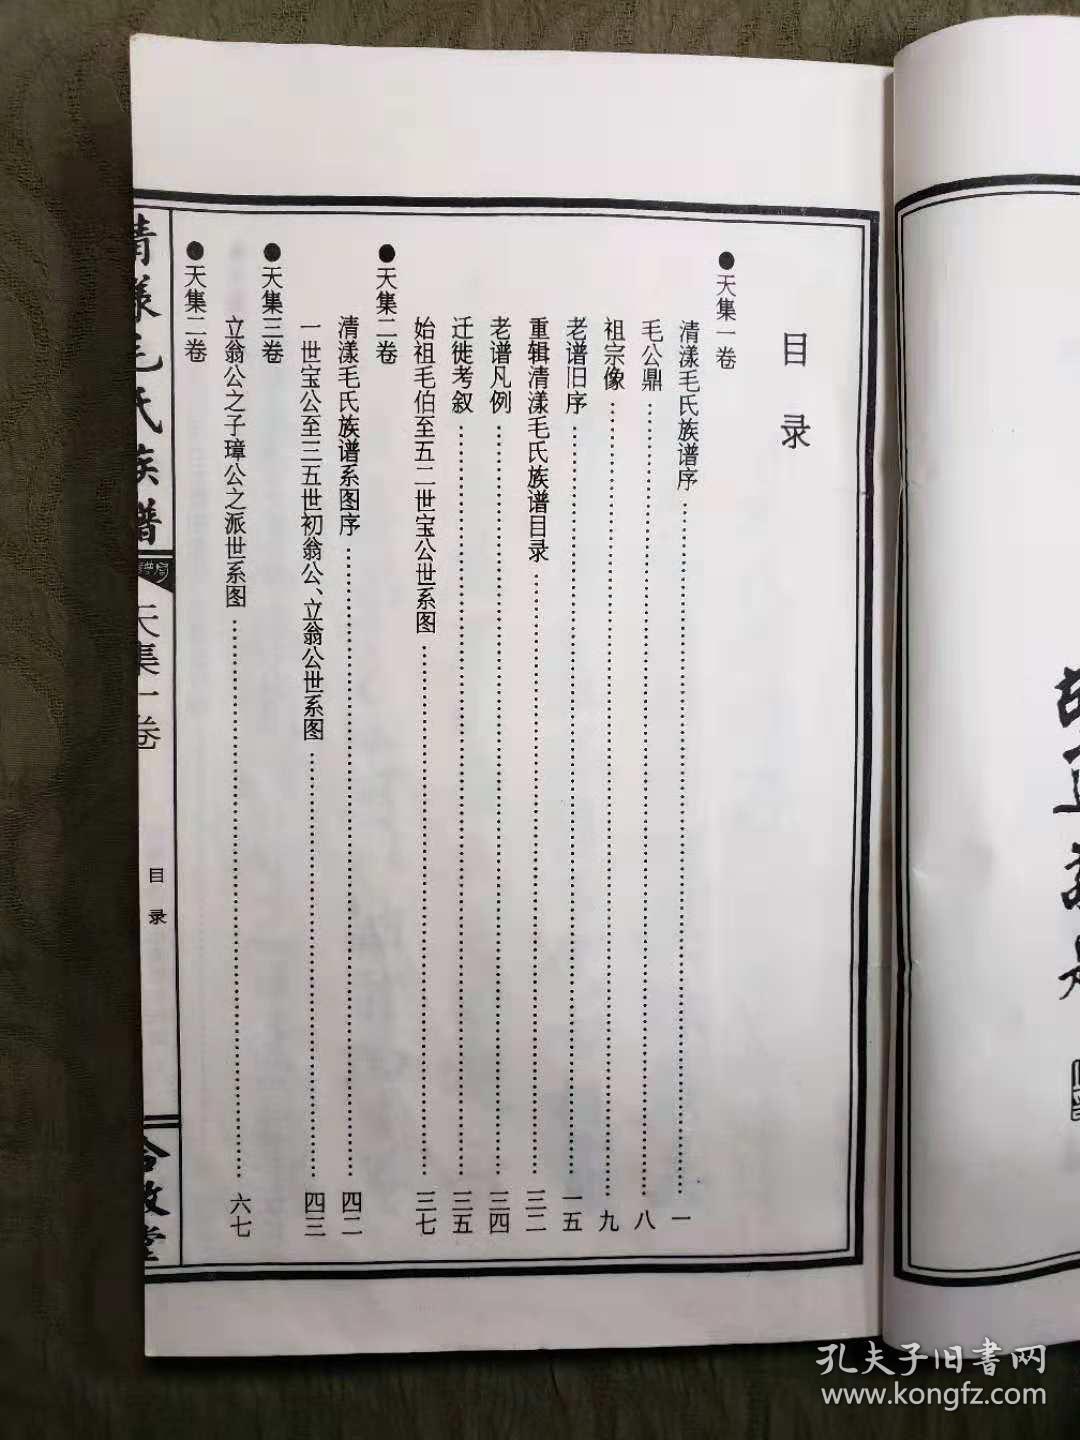 目录
●天集一卷
清漾毛氏族谱序……一
毛公鼎……八
祖宗像……九
老谱旧序……一五
重辑清漾毛氏族谱目录……三二
老谱凡例……三四
迁徙考叙……三五
始祖毛伯至五二世宝公世系图……三七
●天集二卷
清漾毛氏族谱系图序……四二
一世宝公至三五世初翁公、立翁公世系图……四三
●天集三卷
立翁公之子璋公之派世系图……六七
●天集二卷
清漾毛氏族谱
天集一卷
目录
孔夫子旧书网
www.kongfz.com